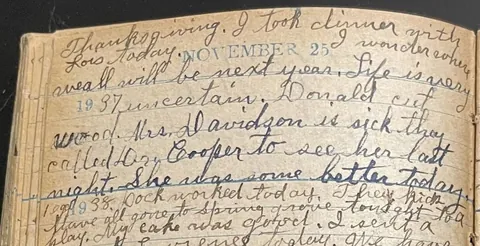 Thanksgiving. I took dinner with
Lois today. I wonder where
NOVEMBER 25
we all will be next year. Life is very
1937 uncertain. Donald cut
wood. Mrs. Davidson is sick they
called Dr. Cooper to see her last
night. She was some better today.
1938. Dock worked today. They
have all gone to Spring Grove tonight to a
play. My cake was good. I sent a
today.